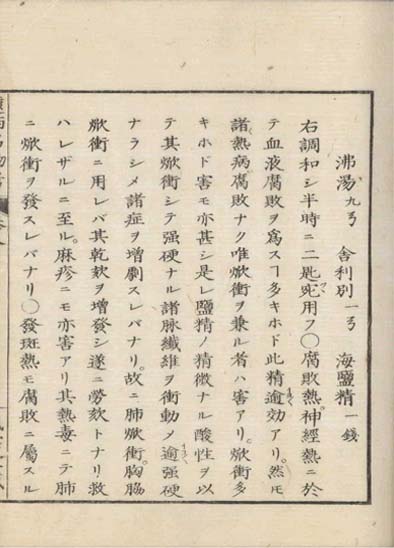 沸湯九弓　舎利別一弓　海鹽精一錢
右調和シ半時ニ二匙宛用フ〇腐敗熱。神經熱ニ於
テ血液腐敗ヲ爲スヿ多キホド此精逾効アリ。然モ
諸熱病腐敗ナク唯焮衝ヲ兼ル者ハ害アリ。焮衝多
キホド害モ亦甚シ是レ鹽精ノ精微ナル酸性ヲ以
テ其焮衝シテ强硬ナル諸脉纎維ヲ衝動メ逾强硬
ナラシメ諸症ヲ增劇スレバナリ。故ニ肺焮衝。胸脇
焮衝ニ用レバ其乾欬ヲ增發シ遂ニ勞欬トナリ救
ハレザルニ至ル。麻疹ニモ亦害アリ其熱毒ニテ肺
ニ焮衝ヲ發スレバナリ〇發斑熱モ腐敗ニ屬スル